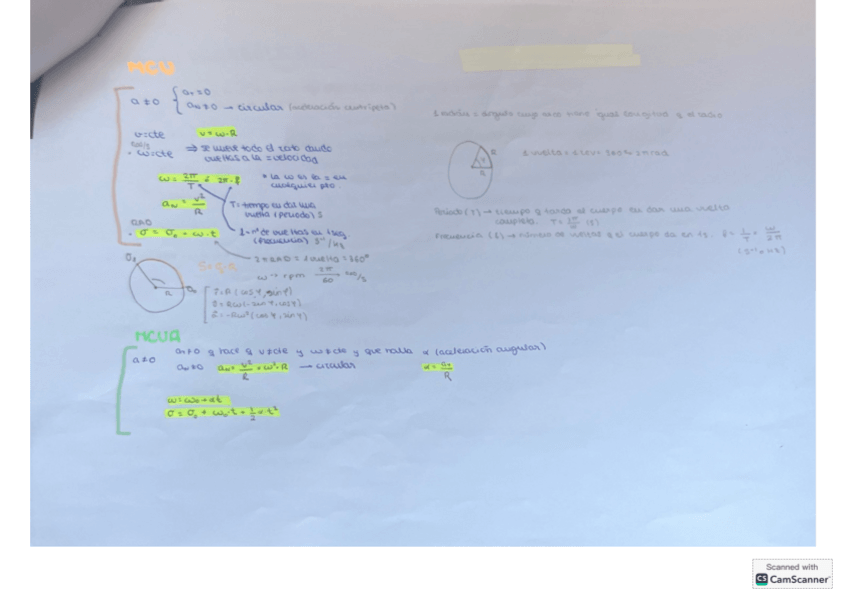 MCU
a≠0 { at=0
an≠0 → circular (aceleración centrípeta)
v=cte v=ω·R
rad/s
- ω=cte ⇒ se mueve todo el rato dando
vueltas a la = velocidad
ω= 2π/T ó 2π·f
* La ω es la = en
cualquier pto.
an= v²/R
T=tiempo en dar una
vuelta (periodo) s
f=nº de vueltas en 1 seg
(frecuencia) s⁻¹/Hz
RAD
- σ = σ₀ + ω·t
2π RAD = 1 vuelta = 360°
ω → rpm 2π/60 rad/s
R
(cos φ, sin φ)
(-sin φ, cos φ)
(cos φ, sin φ)
1 radián = ángulo cuyo arco tiene igual longitud q el radio
R
R
1 vuelta = 1 rev = 360° = 2π rad
Periodo (T) → tiempo q tarda el cuerpo en dar una vuelta
completa. T= 2π/ω (s)
Frecuencia (f) → número de vueltas q el cuerpo da en 1s. f= 1/T = ω/2π
(s⁻¹ o Hz)
MCUA
a≠0 at≠0 q hace q v≠cte y ω≠cte y que haya α (aceleración angular)
an≠0 an= v²/R = ω²·R → circular α= at/R
ω=ω₀+αt
σ=σ₀ + ω₀·t + ½ α t²
Scanned with
CS CamScanner